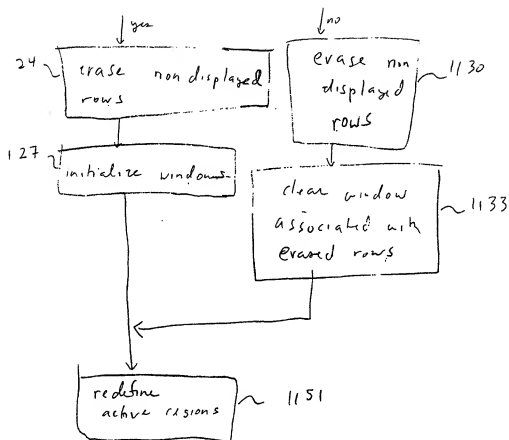 yes
no
24
erase non displayed
rows
erase non
displayed
rows
1130
127
initialize windows
clear window
associated with
erased rows
1133
redefine
active regions
1151